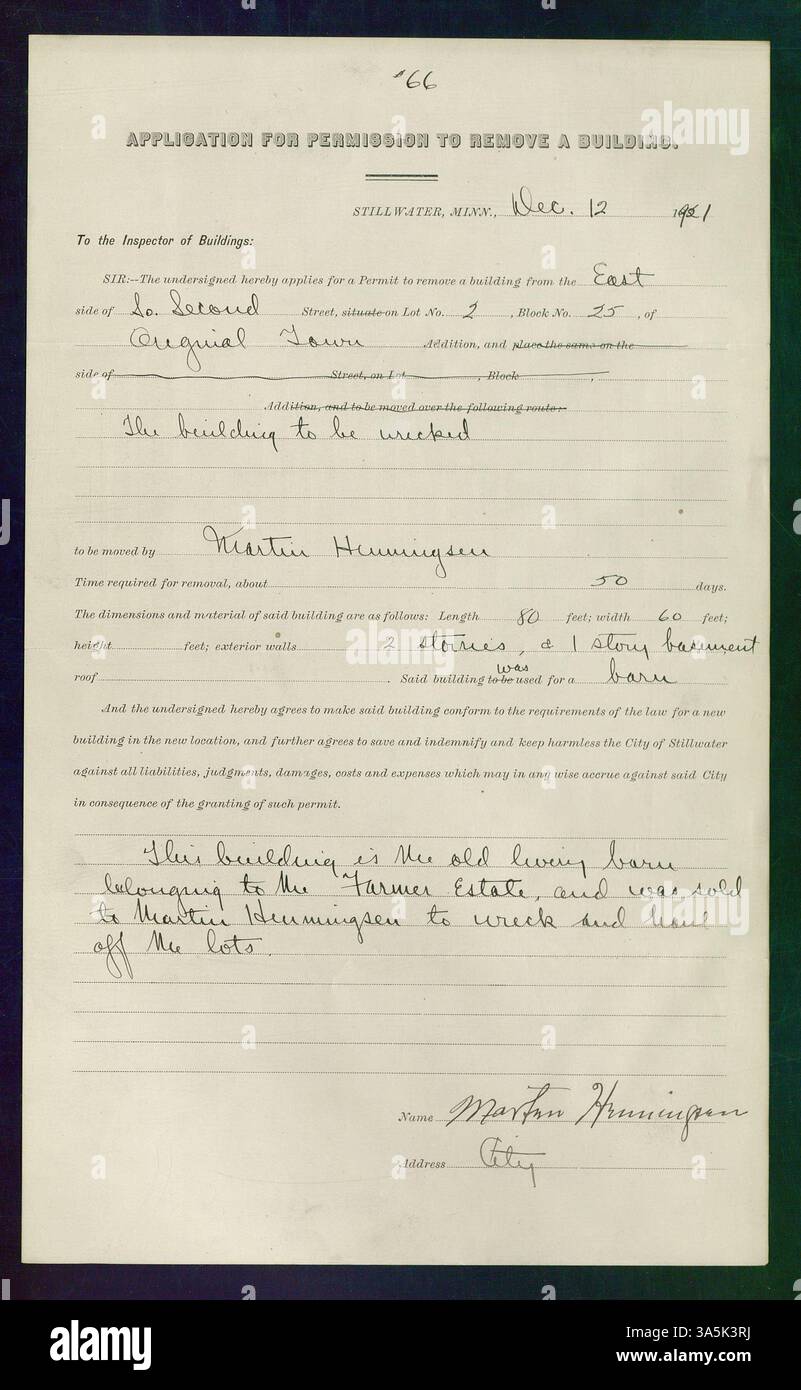 #66
APPLICATION FOR PERMISSION TO REMOVE A BUILDING.
STILLWATER, MINN., Dec. 12 1921
To the Inspector of Buildings:
SIR:--The undersigned hereby applies for a Permit to remove a building from the East
side of So. Second Street, situate on Lot No. 2, Block No. 25, of
Original Town Addition, and place the same on the
side of Street, on Lot , Block ,
Addition, and to be moved over the following route:-
The building to be wrecked
to be moved by Martin Henningsen
Time required for removal, about 50 days.
The dimensions and material of said building are as follows: Length 80 feet; width 60 feet;
height feet; exterior walls 2 storries, & 1 story basement
roof . Said building to be was used for a barn
And the undersigned hereby agrees to make said building conform to the requirements of the law for a new
building in the new location, and further agrees to save and indemnify and keep harmless the City of Stillwater
against all liabilities, judgments, damages, costs and expenses which may in any wise accrue against said City
in consequence of the granting of such permit.
This building is the old livery barn
belonging to the Farmer Estate, and was sold
to Martin Henningsen to wreck and haul
off the lots.
Name Martin Henningsen
Address City
alamy
Image ID: 3A5K3RJ
www.alamy.com